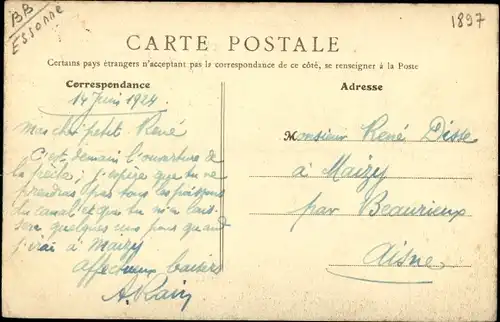 BB
Essonne
1897
CARTE POSTALE
Certains pays étrangers n'acceptant pas la correspondance de ce côté, se renseigner à la Poste
Correspondance
Adresse
14 Juin 1924
Mon cher petit René
C'est demain l'ouverture de
la pêche; j'espère que tu ne
prendras pas tous les poissons
du canal et que tu m'en lais-
sera quelques uns pour quand
j'irai à Maizy
Affectueux baisers
Monsieur René Disse
à Maizy
par Beaurieux
Aisne